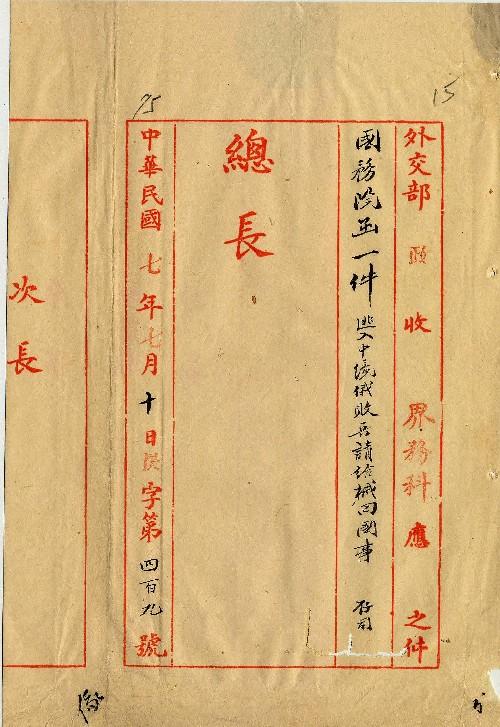 15
外交部 收 界務科 應 之件
國務院函一件 逃入中境俄敗兵請給械回國事 存閱
總長
75
中華民國 七年七月十日 字第 四百九 號
次長